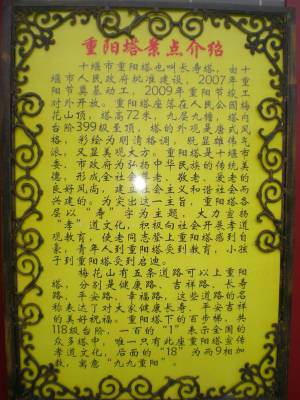 重阳塔景点介绍
十堰市重阳塔也叫长寿塔，由十
堰市人民政府批准建设，2007年重
阳节奠基动工，2009年重阳节竣工
对外开放。重阳塔座落在人民公园梅
花山顶，塔高72米，九层九檐，塔内
台阶399级至顶，塔的外观是唐式风
格，彩绘为明清格调，既显雄伟气
派，又显美观大方。重阳塔是十堰市
委、市政府为弘扬中华民族的传统美
德，形成全社会尊老、敬老、爱老的
良好风尚，建立社会主义和谐社会而
兴建的。为突出这一主旨，重阳塔各
层以“寿”字为主题，大力宣扬
“孝”道文化，积极向社会开展孝道
观教育，使老同志登上重阳塔感到自
豪，青年人到重阳塔受到教育，小孩
子到重阳塔受到启迪。
梅花山有五条道路可以上重阳
塔，分别是健康路、吉祥路、长寿
路、平安路、幸福路，这些道路的名
称表达了对大家健康长寿、平安吉祥
的美好祝福。重阳塔下的百步梯，共
118级台阶，一百的“1”表示全国的
众多塔中，唯一只有此座重阳塔宣传
孝道文化，后面的“18”为两9相加
数，寓意“九九重阳”。